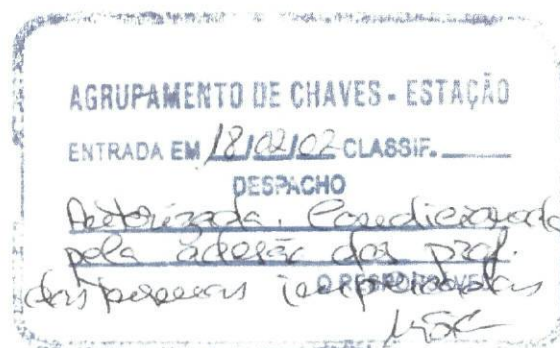 AGRUPAMENTO DE CHAVES - ESTAÇÃO
ENTRADA EM 18/02/02 CLASSIF.
DESPACHO
Autorizada. Condicionada
pela adesão dos prof.
O RESPONSÁVEL
das pessoas